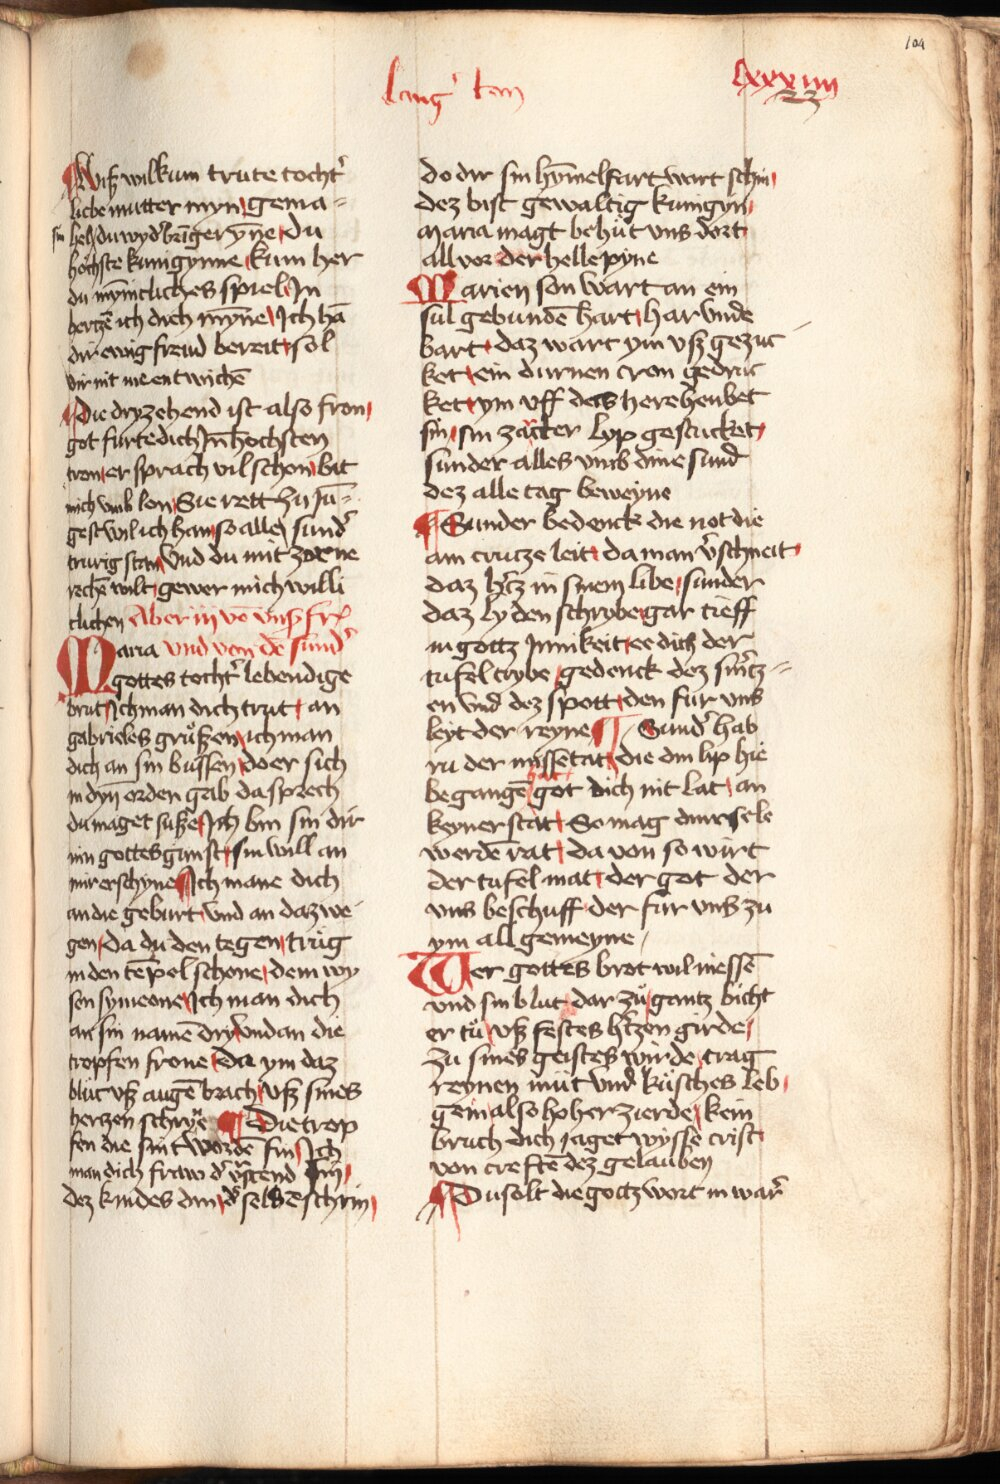 104
lang' ton
lxxxiiii
¶ Wiß wilkum trute tocht'
liebe mutter myn gema=
hel du wyd'bringeryñe du
höchste kunigynne kum her
du mynncliches spiel Jn
hertzē ich dich mȳne Jch hā
dir ewig freud bereit sol
dir nit me entwichē
¶ Die dryzehend ist also fron
got furte dich Jn hochsten
tron er sprach vil schon bit
mich vmb lon Sie rett zu Ju=
gest wil ich han so alle sund'
trurig stan Vnd du mit zorne
rechē wilt gewer mich willi
clichen Aber iij vō vnß fr'
Maria vnd von dē sund'
gottes tocht' lebendige
brut Jch man dich trut an
gabrieles grußen ich man
dich an sin bussen do er sich
in dyn orden gab da sprech
du maget suße Jch bin sin dir
nin gottes gunst sin will an
mir erschyne ¶ Jch mane dich
an die geburt vnd an daz we
gen da du den tegen trug
in den tēpel schone dem wy
sen symeone Jch man dich
an sin namē dry vnd an die
tropfen frone da ym daz
blut vß augē brach vß sines
hertzen schryē ¶ Die trop
fen die sint wordē fin Jch
man dich fraw d' vrstend sin
dez kindes din d' selbē schrin
do dir sin hȳmelfart wart schin
dez bist gewaltig kunigyn
Maria magt behut vns dort
all vor der helle pyne
Marien son wart an ein
sul gebundē hart har vnde
bart daz wart ym vß gezuc
ket ein durnen cron gedruc
ket ym vff des here heubet
sin sin zarter lyp gestucket
sunder alles vmb dine sund
dez alle tag beweyne
¶ Sunder bedenck die not die
am crucze leit da man v'schneit
daz h'tz in sinem libe sunder
daz lyden schrybe gar tieff
in gottz Jnnikeit ee dich der
tufel trybe gedenck dez sm'tz=
en vnd dez spott den fur vns
leyt der reyne ¶ Sund' hab
ru der missetat die din lip hie
begangē hat got dich nit lat an
keyner stat So mag diner sele
werdē rat da von so wurt
der tufel mat der got der
vns beschuff der fur vns zu
ym all gemeyne
Wer gottes brot wil niessē
vnd sin blut dar zu gantz bicht
er tu vß festes h'tzen girde
zu sines geistes wirde trag
reynen mut vnd kusches leb
gein also hoher zierde kein
bruch dich iaget wysse crist
von creftē dez gelauben
¶ Du solt die gottz wort in war'